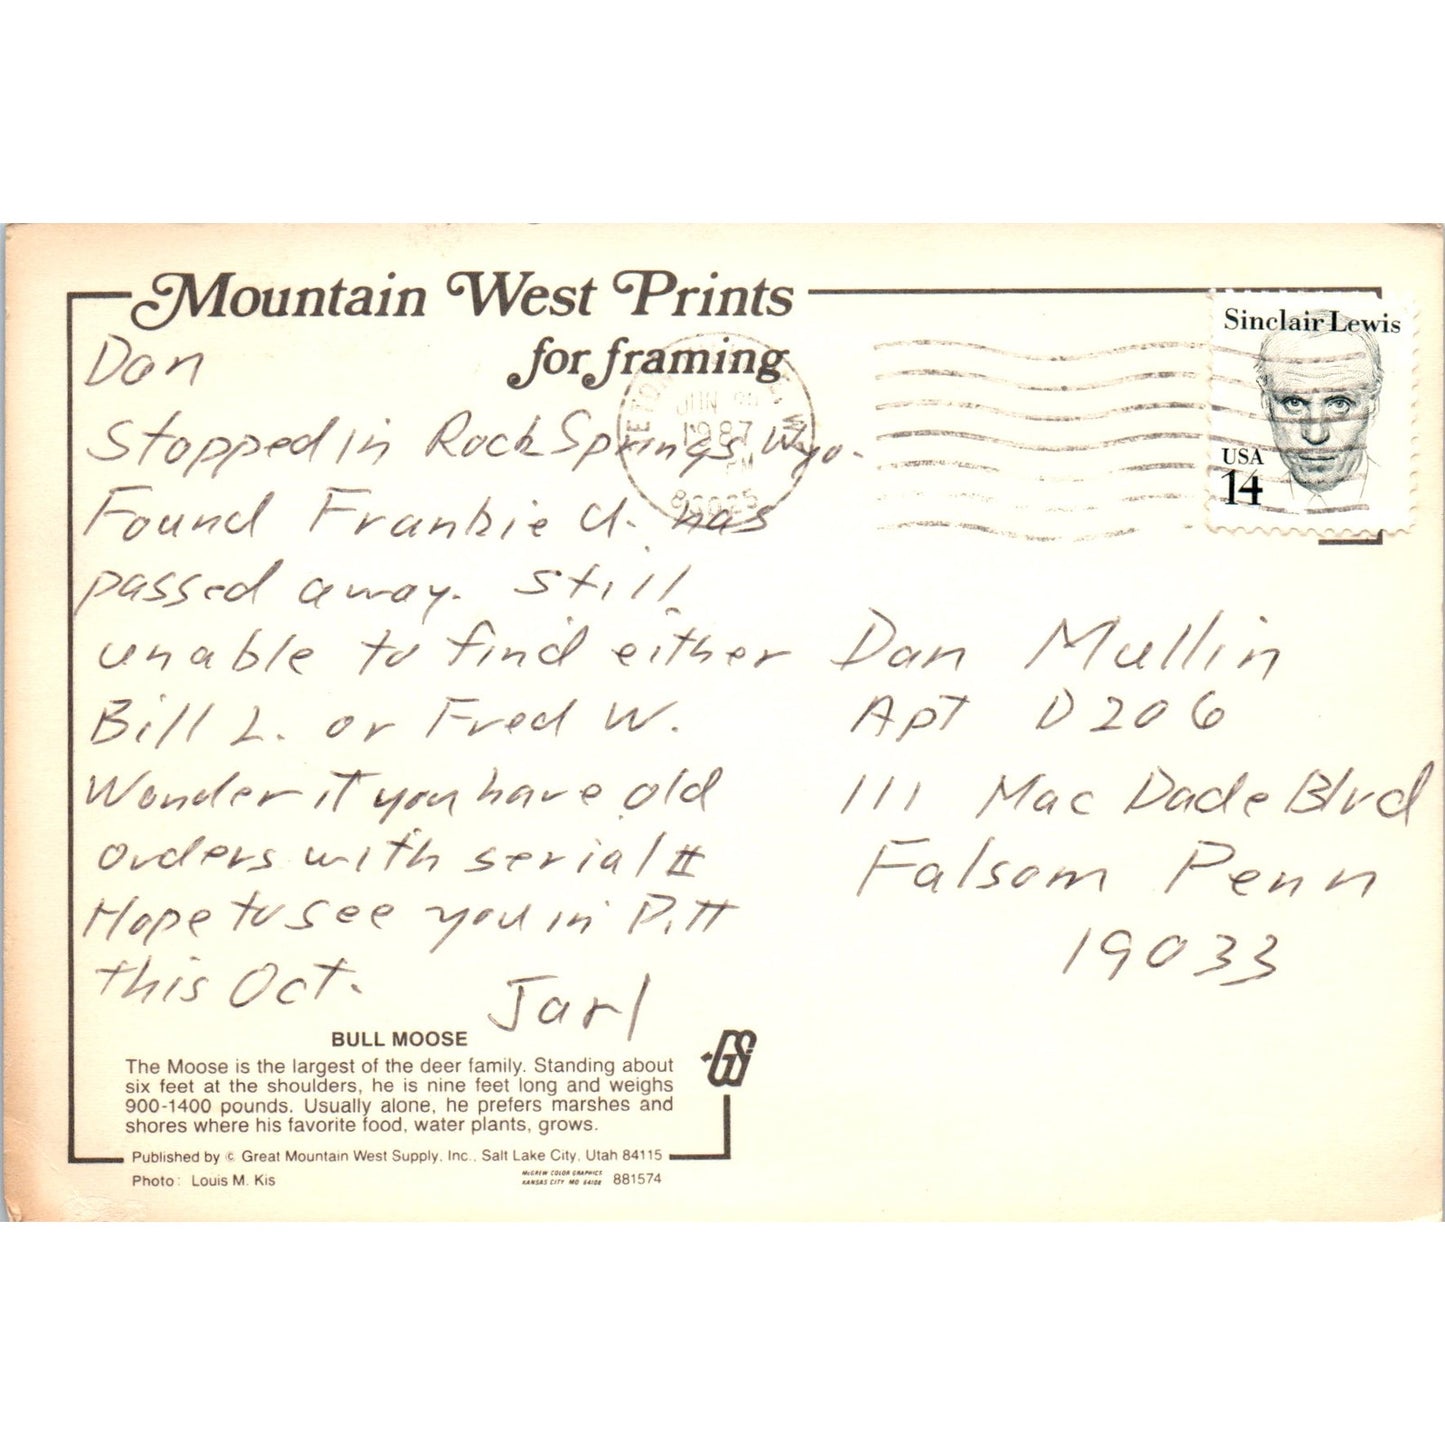 Mountain West Prints
for framing
Sinclair Lewis
USA
14
JUN
1987
PM
Dan
Stopped in Rock Springs Wyo.
Found Frankie U. has
passed away. Still
unable to find either
Bill L. or Fred W.
Wonder if you have old
orders with serial #
Hope to see you in Pitt
this Oct.
Jarl
Dan Mullin
Apt D206
111 MacDade Blvd
Falsom Penn
19033
BULL MOOSE
The Moose is the largest of the deer family. Standing about
six feet at the shoulders, he is nine feet long and weighs
900-1400 pounds. Usually alone, he prefers marshes and
shores where his favorite food, water plants, grows.
Published by © Great Mountain West Supply, Inc., Salt Lake City, Utah 84115
Photo: Louis M. Kis
McGREW COLOR GRAPHICS
KANSAS CITY MO 64108
881574